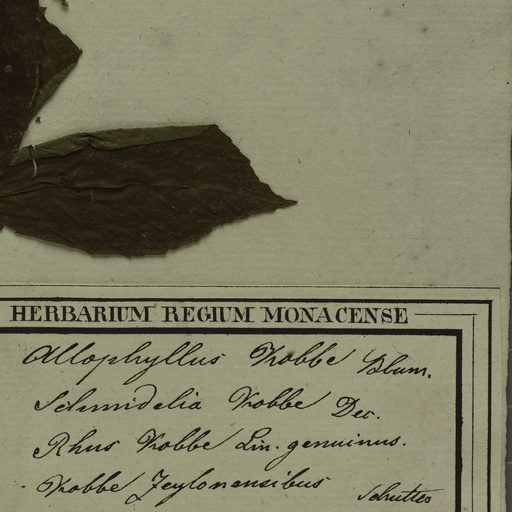 HERBARIUM REGIUM MONACENSE
Allophyllus Kobbe Blum.
Schmidelia Kobbe Dec.
Rhus Kobbe Lin. genuinus.
Kobbe Zeylonensibus